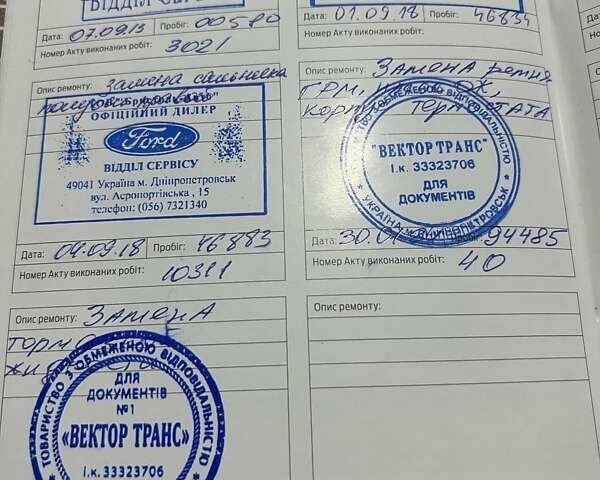 ВІДДІЛ СЕРВ
Дата: 07.09.13 Пробіг: 00580
Номер Акту виконаних робіт:
3021
Опис ремонту: Замена сальника
ОФІЦІЙНИЙ ДИЛЕР
Ford
ВІДДІЛ СЕРВІСУ
49041 Україна м. Дніпропетровськ
вул. Аеропортівська , 15
телефон: (056) 7321340
Дата: 04.09.18 Пробіг: 46883
Номер Акту виконаних робіт:
10311
Опис ремонту: Замена
ТОВАРИСТВО З ОБМЕЖЕНОЮ ВІДПОВІДАЛЬНІСТЮ
ДЛЯ
ДОКУМЕНТІВ
№1
«ВЕКТОР ТРАНС»
І.к. 33323706
Дата: 01.09.18 Пробіг: 46834
Номер Акту виконаних робіт:
Опис ремонту: Замена ремня
ГРМ,
термостата
ОБМЕЖЕНОЮ ВІДПОВІДАЛЬНІСТЮ
"ВЕКТОР ТРАНС"
І.к. 33323706
ДЛЯ
ДОКУМЕНТІВ
УКРАЇНА м. ДНІПРОПЕТРОВСЬК
Дата: 30.01 94485
Номер Акту виконаних робіт: 40
Опис ремонту: